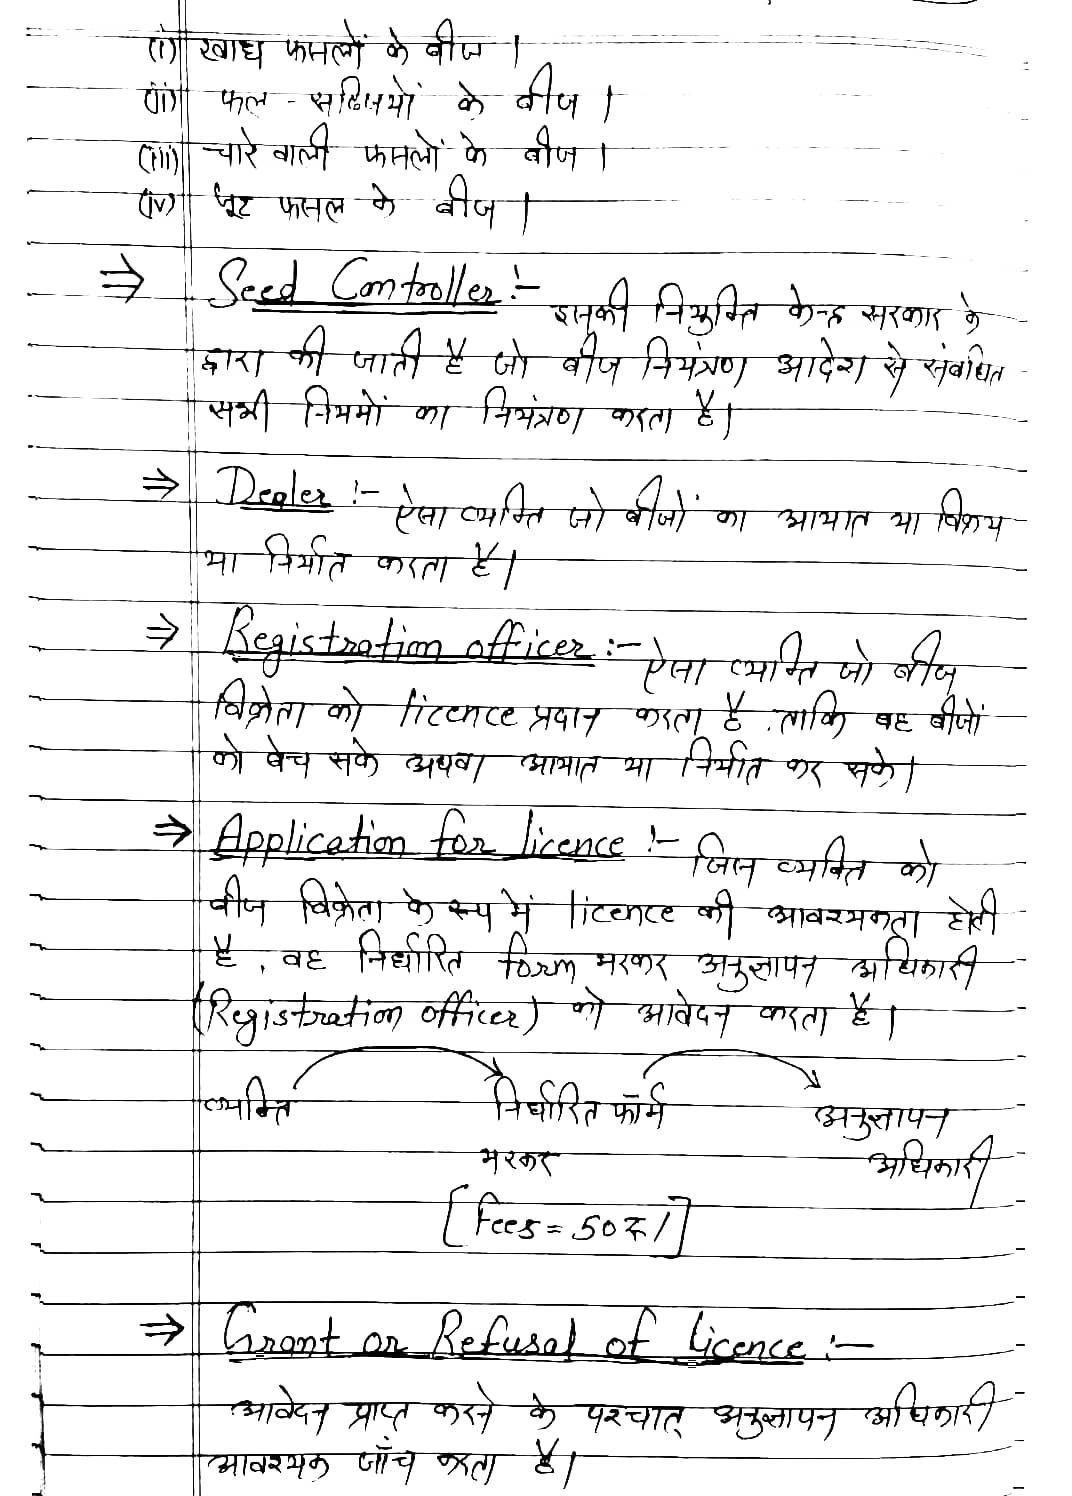 (i) खाद्य फसलों के बीज।
(ii) फल - सब्जियों के बीज।
(iii) चारे वाली फसलों के बीज।
(iv) जूट फसल के बीज।
⇒ Seed Controller :- इसकी नियुक्ति केन्द्र सरकार के
द्वारा की जाती है जो बीज नियंत्रण आदेश से संबंधित
सभी नियमों का नियंत्रण करता है।
⇒ Dealer :- ऐसा व्यक्ति जो बीजों का आयात या विक्रय
या निर्यात करता है।
⇒ Registration officer :- ऐसा व्यक्ति जो बीज
विक्रेता को licence प्रदान करता है, ताकि वह बीजों
को बेच सके अथवा आयात या निर्यात कर सके।
⇒ Application for licence :- जिस व्यक्ति को
बीज विक्रेता के रूप में licence की आवश्यकता होती
है, वह निर्धारित form भरकर अनुज्ञापन अधिकारी
(Registration officer) को आवेदन करता है।
व्यक्ति निर्धारित फॉर्म अनुज्ञापन
भरकर अधिकारी
[Fees = 50₹/]
⇒ Grant or Refusal of licence :-
आवेदन प्राप्त करने के पश्चात् अनुज्ञापन अधिकारी
आवश्यक जाँच करता है।